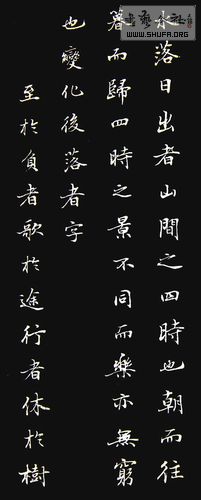 水落日出者山間之四時也朝而往
暮而歸四時之景不同而樂亦無窮
也變化後落者字
至於負者歌於途行者休於樹
WWW.SHUFA.ORG